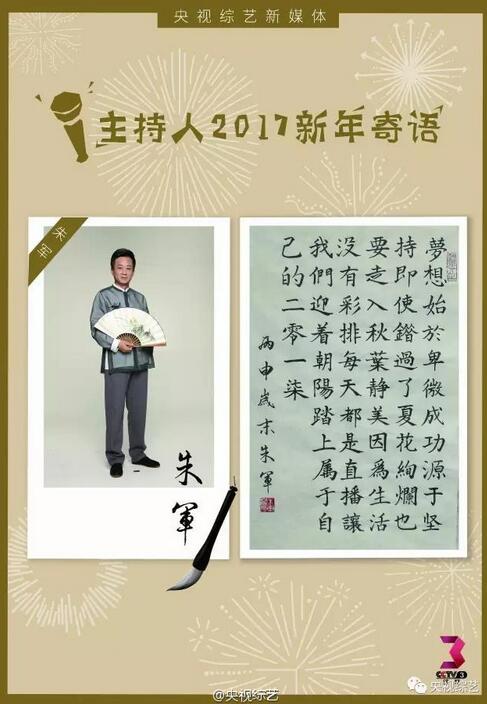 央视综艺新媒体
主持人2017新年寄语
朱军
朱軍
夢想始於卑微成功源于坚
持即使錯過了夏花絢爛也
要走入秋葉静美因爲生活
没有彩排每天都是直播讓
我們迎着朝陽踏上属于自
己的二零一柒
丙申歲末朱軍
3
CCTV·3
@央视综艺
央视综艺